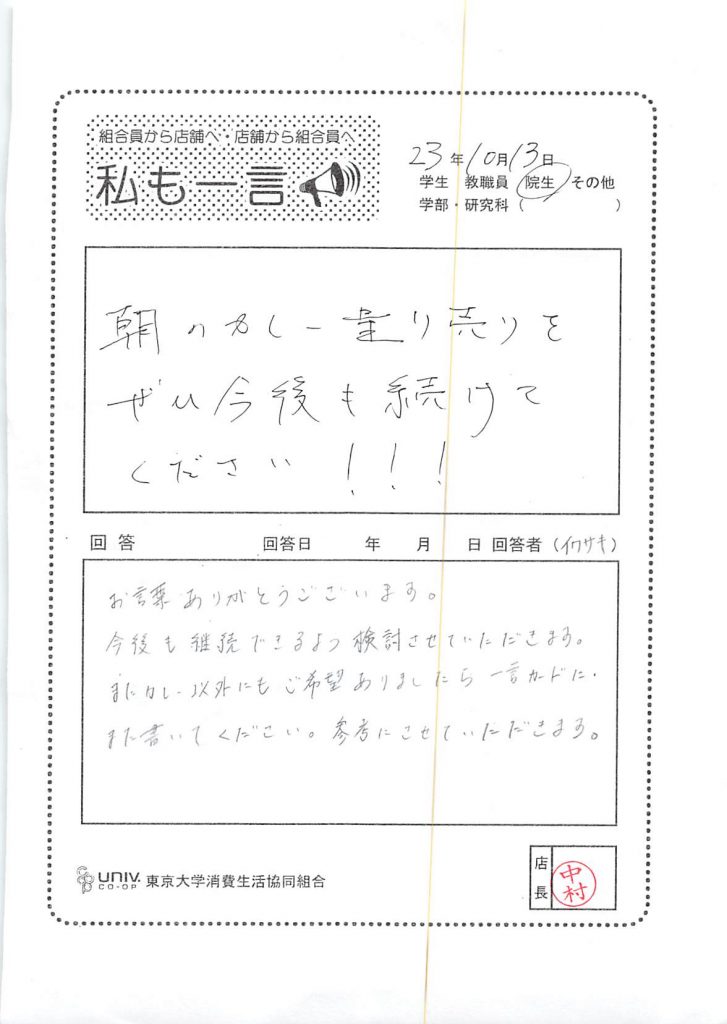 組合員から店舗へ・店舗から組合員へ
私も一言
23年10月13日
学生 教職員 院生 その他
学部・研究科( )
朝のカレー量り売りを
ぜひ今後も続けて
ください!!!
回答 回答日 年 月 日 回答者(イワサキ)
お言葉ありがとうございます。
今後も継続できるよう検討させていただきます。
またカレー以外にもご希望ありましたら一言カードに、
また書いてください。参考にさせていただきます。
UNIV.
CO-OP
東京大学消費生活協同組合
店長
中村